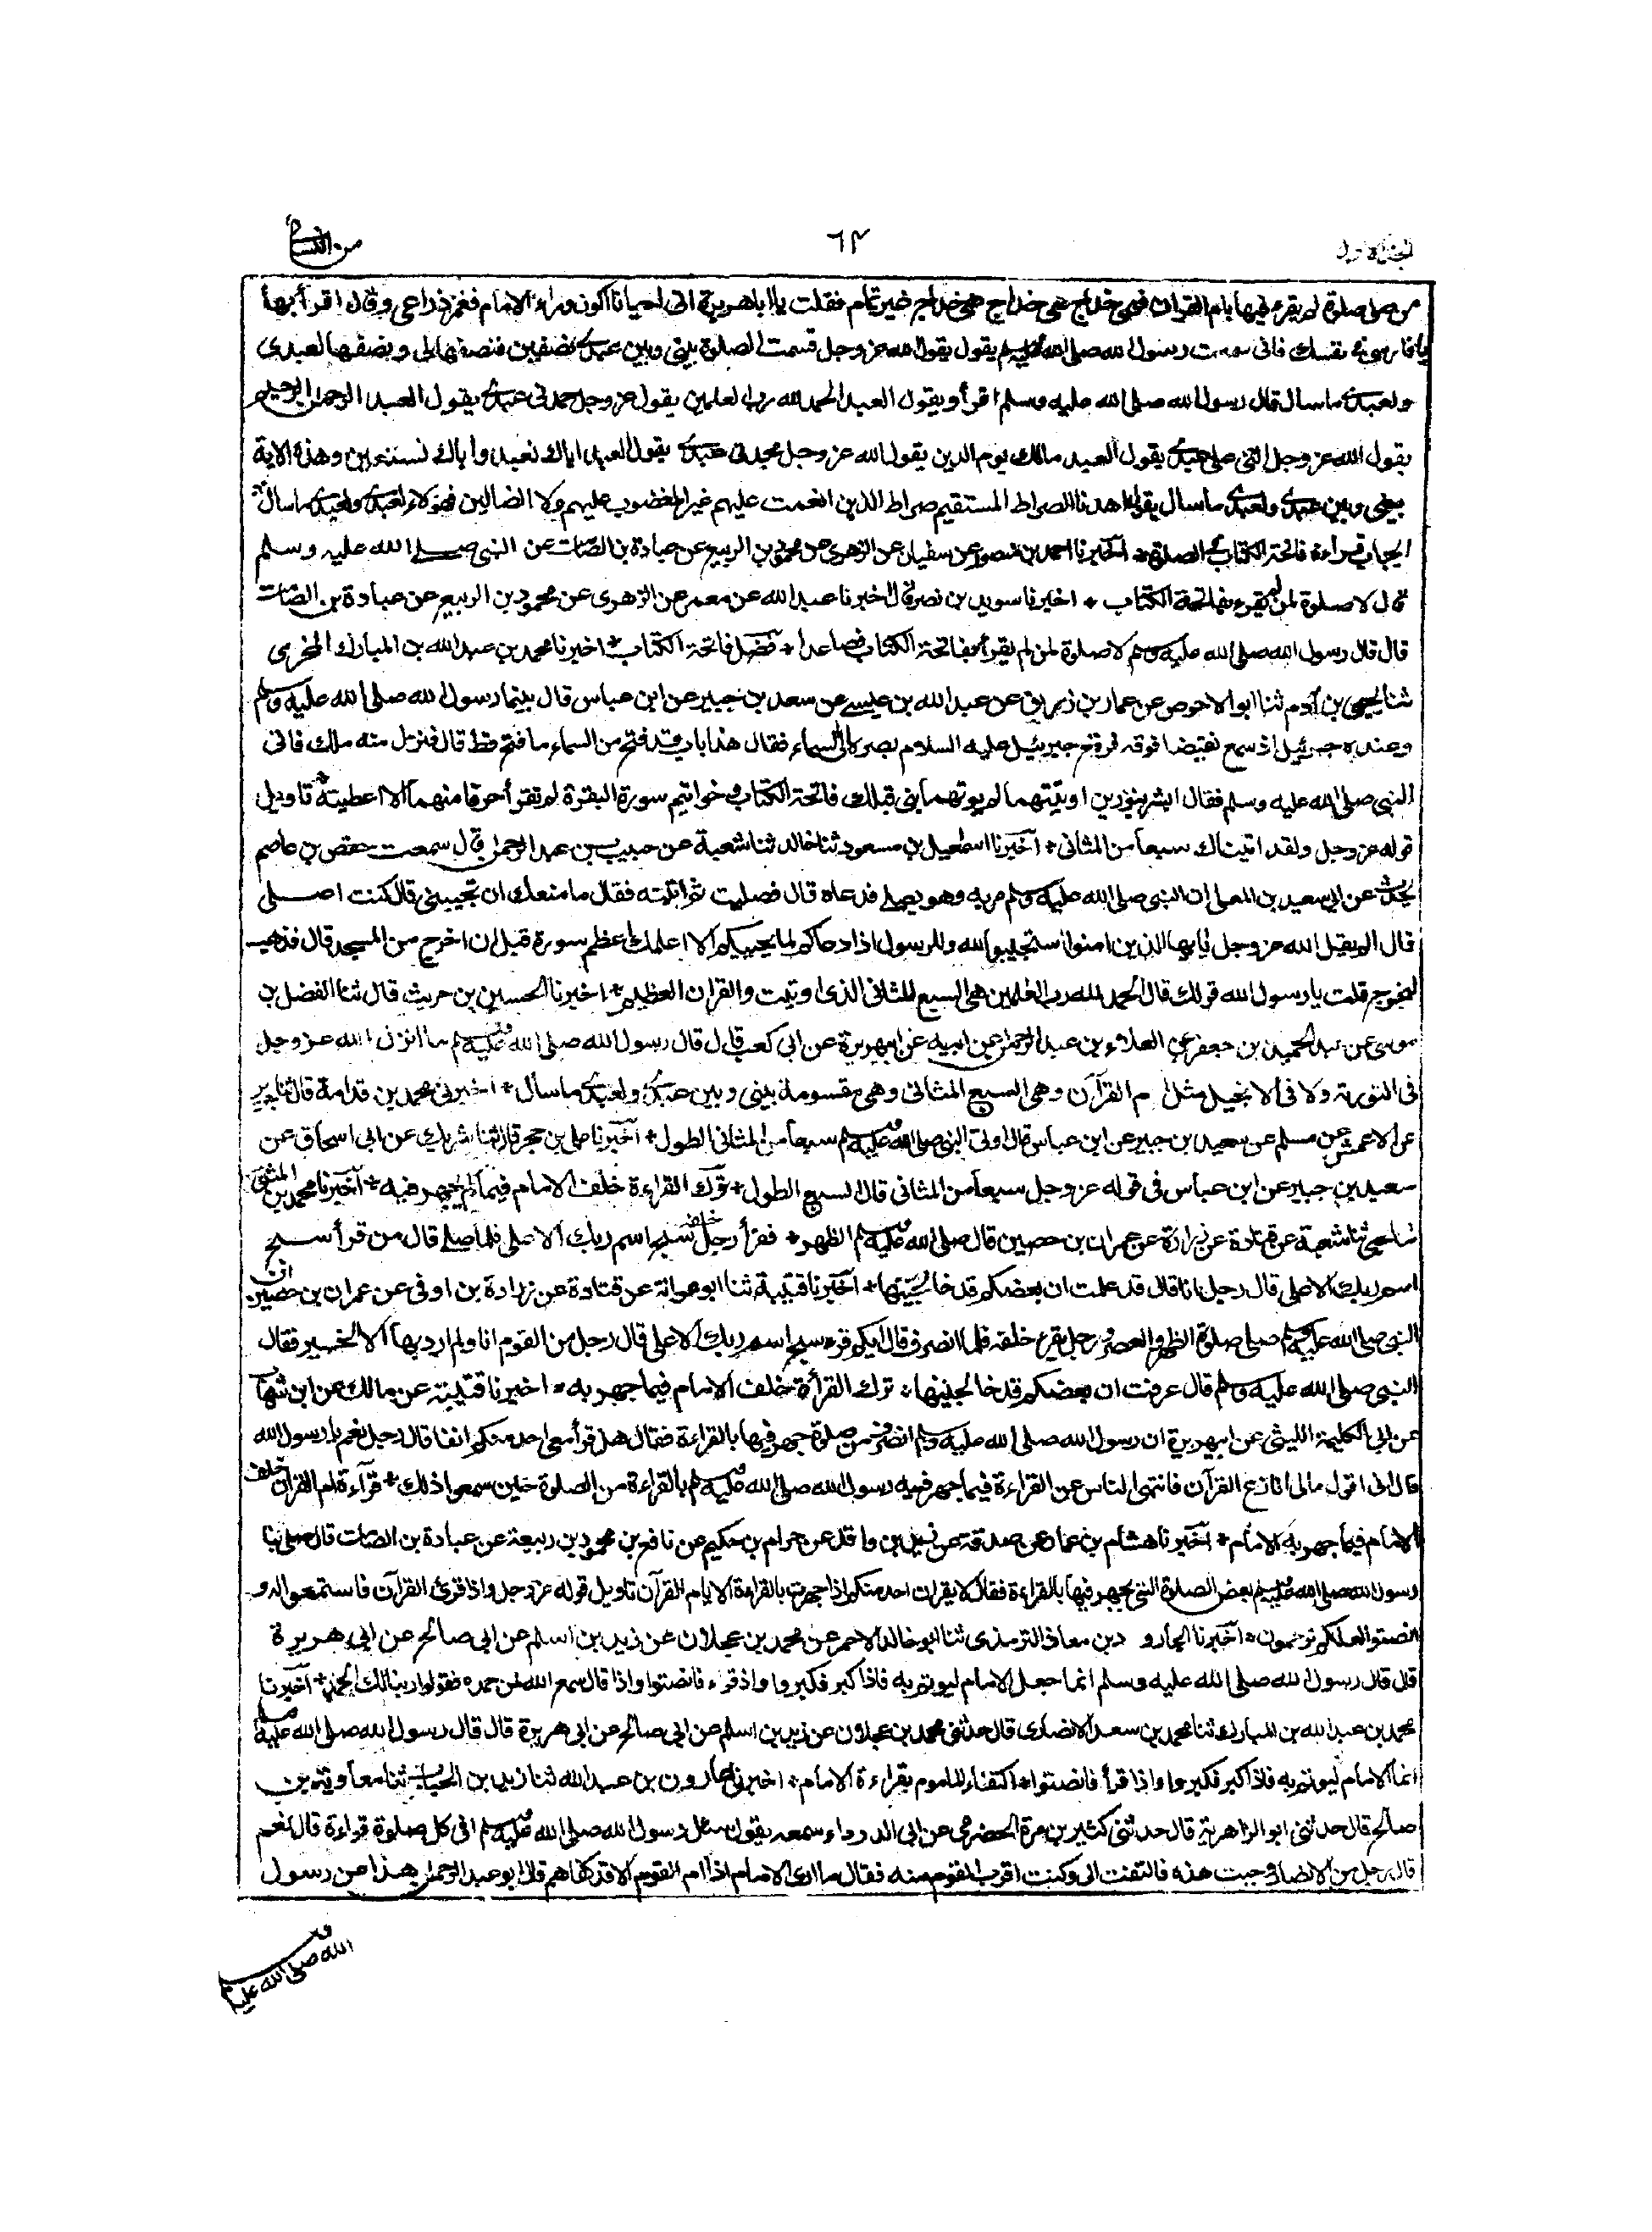 الجزء الاول
٦٣
من النسائي
من صلى صلوة لم يقرء فيها بام القران فهي خداج هي خداج هي خداج غير تمام فقلت يا ابا هريرة انى احيانا اكون وراء الامام فغمز ذراعى وقال اقرأ بها
يا فارسي في نفسك فانى سمعت رسول الله صلى الله عليه وسلم يقول يقول الله عز وجل قسمت الصلوة بينى وبين عبدى نصفين فنصفها لى ونصفها لعبدى
ولعبدى ما سال قال رسول الله صلى الله عليه وسلم اقرأو يقول العبد الحمد لله رب العلمين يقول عز وجل حمدنى عبدى يقول العبد الرحمن الرحيم
يقول الله عز وجل اثنى على عبدى يقول العبد مالك يوم الدين يقول الله عز وجل مجدنى عبدى يقول العبد اياك نعبد واياك نستعين وهذه الاية
بينى وبين عبدى ولعبدى ما سال يقول اهدنا الصراط المستقيم صراط الذين انعمت عليهم غير المغضوب عليهم ولا الضالين فهؤلاء لعبدى ولعبدى ما سال
ايجاب قراءة فاتحة الكتاب في الصلوة * اخبرنا احمد بن منصور عن سفيان عن الزهرى عن محمود بن الربيع عن عبادة بن الصامت عن النبى صلى الله عليه وسلم
قال لا صلوة لمن لم يقرء بفاتحة الكتاب * اخبرنا سويد بن نصر قال اخبرنا عبد الله عن معمر عن الزهرى عن محمود بن الربيع عن عبادة بن الصامت
قال قال رسول الله صلى الله عليه وسلم لا صلوة لمن لم يقرأ بفاتحة الكتاب فصاعدا * فضل فاتحة الكتاب * اخبرنا محمد بن عبد الله بن المبارك المخرمى
ثنا يحيى بن آدم ثنا ابو الاحوص عن عمار بن زريق عن عبد الله بن عيسى عن سعد بن جبير عن ابن عباس قال بينما رسول الله صلى الله عليه وسلم
وعنده جبرئيل اذ سمع نقيضا فوقه فرفع جبرئيل عليه السلام بصره الى السماء فقال هذا باب قد فتح من السماء ما فتح قط قال فنزل منه ملك فاتى
النبى صلى الله عليه وسلم فقال ابشر بنورين اوتيتهما لم يوتهما نبى قبلك فاتحة الكتاب وخواتيم سورة البقرة لم تقرأ حرفا منهما الا اعطيته تاويل
قوله عز وجل ولقد اتيناك سبعا من المثانى * اخبرنا اسمعيل بن مسعود ثنا خالد ثنا شعبة عن حبيب بن عبد الرحمن قال سمعت حفص بن عاصم
يحدث عن ابي سعيد بن المعلى ان النبى صلى الله عليه وسلم مر به وهو يصلى فدعاه قال فصليت ثم اتيته فقال ما منعك ان تجيبنى قال كنت اصلى
قال الم يقل الله عز وجل يا ايها الذين امنوا استجيبوا لله وللرسول اذا دعاكم لما يحييكم الا اعلمك اعظم سورة قبل ان اخرج من المسجد قال فذهب
ليخرج قلت يا رسول الله قولك قال الحمد لله رب العلمين هى السبع المثانى الذى اوتيت والقران العظيم * اخبرنا الحسين بن حريث قال ثنا الفضل بن
موسى عن عبد الحميد بن جعفر عن العلاء بن عبد الرحمن عن ابيه عن ابى هريرة عن ابى كعب قال قال رسول الله صلى الله عليه وسلم ما انزل الله عز وجل
فى التورية ولا فى الانجيل مثل ام القرآن وهى السبع المثانى وهى مقسومة بينى وبين عبدى ولعبدى ما سأل * اخبرنى محمد بن قدامة قال ثنا جرير
عن الاعمش عن مسلم عن سعيد بن جبير عن ابن عباس قال اوتى النبى صلى الله عليه وسلم سبعا من المثانى الطول * اخبرنا على بن حجر قال ثنا شريك عن ابى اسحاق عن
سعيد بن جبير عن ابن عباس فى قوله عز وجل سبعا من المثانى قال السبع الطول * ترك القراءة خلف الامام فيما لم يجهر فيه * اخبرنا محمد بن المثنى
ثنا يحيى ثنا شعبة عن قتادة عن زرارة عن عمران بن حصين قال صلى الله عليه وسلم الظهر * فقرأ رجل خلفه سبح اسم ربك الاعلى فلما صلى قال من قرأ سبح
اسم ربك الاعلى قال رجل انا قال قد علمت ان بعضكم قد خالجنيها * اخبرنا قتيبة ثنا ابو عوانة عن قتادة عن زرارة بن اوفى عن عمران بن حصين ان
النبى صلى الله عليه وسلم صلى صلوة الظهر او العصر ورجل يقرء خلفه فلما انصرف قال ايكم قرء سبح اسم ربك الاعلى قال رجل من القوم انا ولم ارد بها الا الخير فقال
النبى صلى الله عليه وسلم قال عرفت ان بعضكم قد خالجنيها * ترك القرأة خلف الامام فيما جهر به * اخبرنا قتيبة عن مالك عن ابن شهاب
عن ابى اكيمة الليثى عن ابى هريرة ان رسول الله صلى الله عليه وسلم انصرف من صلوة جهر فيها بالقراءة فقال هل قرأ معى احد منكم انفا قال رجل نعم يا رسول الله
قال انى اقول مالى انازع القرآن فانتهى الناس عن القراءة فيما جهر فيه رسول الله صلى الله عليه وسلم بالقراءة من الصلوة حين سمعوا ذلك * قرآءة ام القران خلف
الامام فيما جهر به الامام * اخبرنا هشام بن عمار عن صدقة عن زيد بن واقد عن حرام بن حكيم عن نافع بن محمود بن ربيعة عن عبادة بن الصامت قال صلى بنا
رسول الله صلى الله عليه وسلم بعض الصلوة التى يجهر فيها بالقراءة فقال لا يقران احد منكم اذا جهرت بالقراءة الا بام القرآن تاويل قوله عز وجل واذا قرئ القرآن فاستمعوا له و
انصتوا لعلكم ترحمون * اخبرنا الجارود بن معاذ الترمذى ثنا ابو خالد الاحمر عن محمد بن عجلان عن زيد بن اسلم عن ابى صالح عن ابى هريرة
قال قال رسول الله صلى الله عليه وسلم انما جعل الامام ليوتم به فاذا كبر فكبروا واذ قرء فانصتوا واذا قال سمع الله لمن حمده فقولوا ربنا لك الحمد * اخبرنا
محمد بن عبد الله بن المبارك ثنا محمد بن سعد الانصارى قال حدثنى محمد بن عجلان عن زيد بن اسلم عن ابى صالح عن ابى هريرة قال قال رسول الله صلى الله عليه وسلم
انما الامام ليوتم به فاذا كبر فكبروا واذا قرأ فانصتوا * اكتفاء الماموم بقراءة الامام * اخبرنا هارون بن عبد الله ثنا زيد بن الحباب ثنا معاوية بن
صالح قال حدثنى ابو الزاهرية قال حدثنى كثير بن مرة الحضرمى عن ابى الدرداء سمعه يقول سئل رسول الله صلى الله عليه وسلم افى كل صلوة قراءة قال نعم
قال رجل من الانصار وجبت هذه فالتفت الى وكنت اقرب القوم منه فقال ما ارى الامام اذا ام القوم الا قد كفاهم قال ابو عبد الرحمن هذا عن رسول
الله صلى الله عليه وسلم